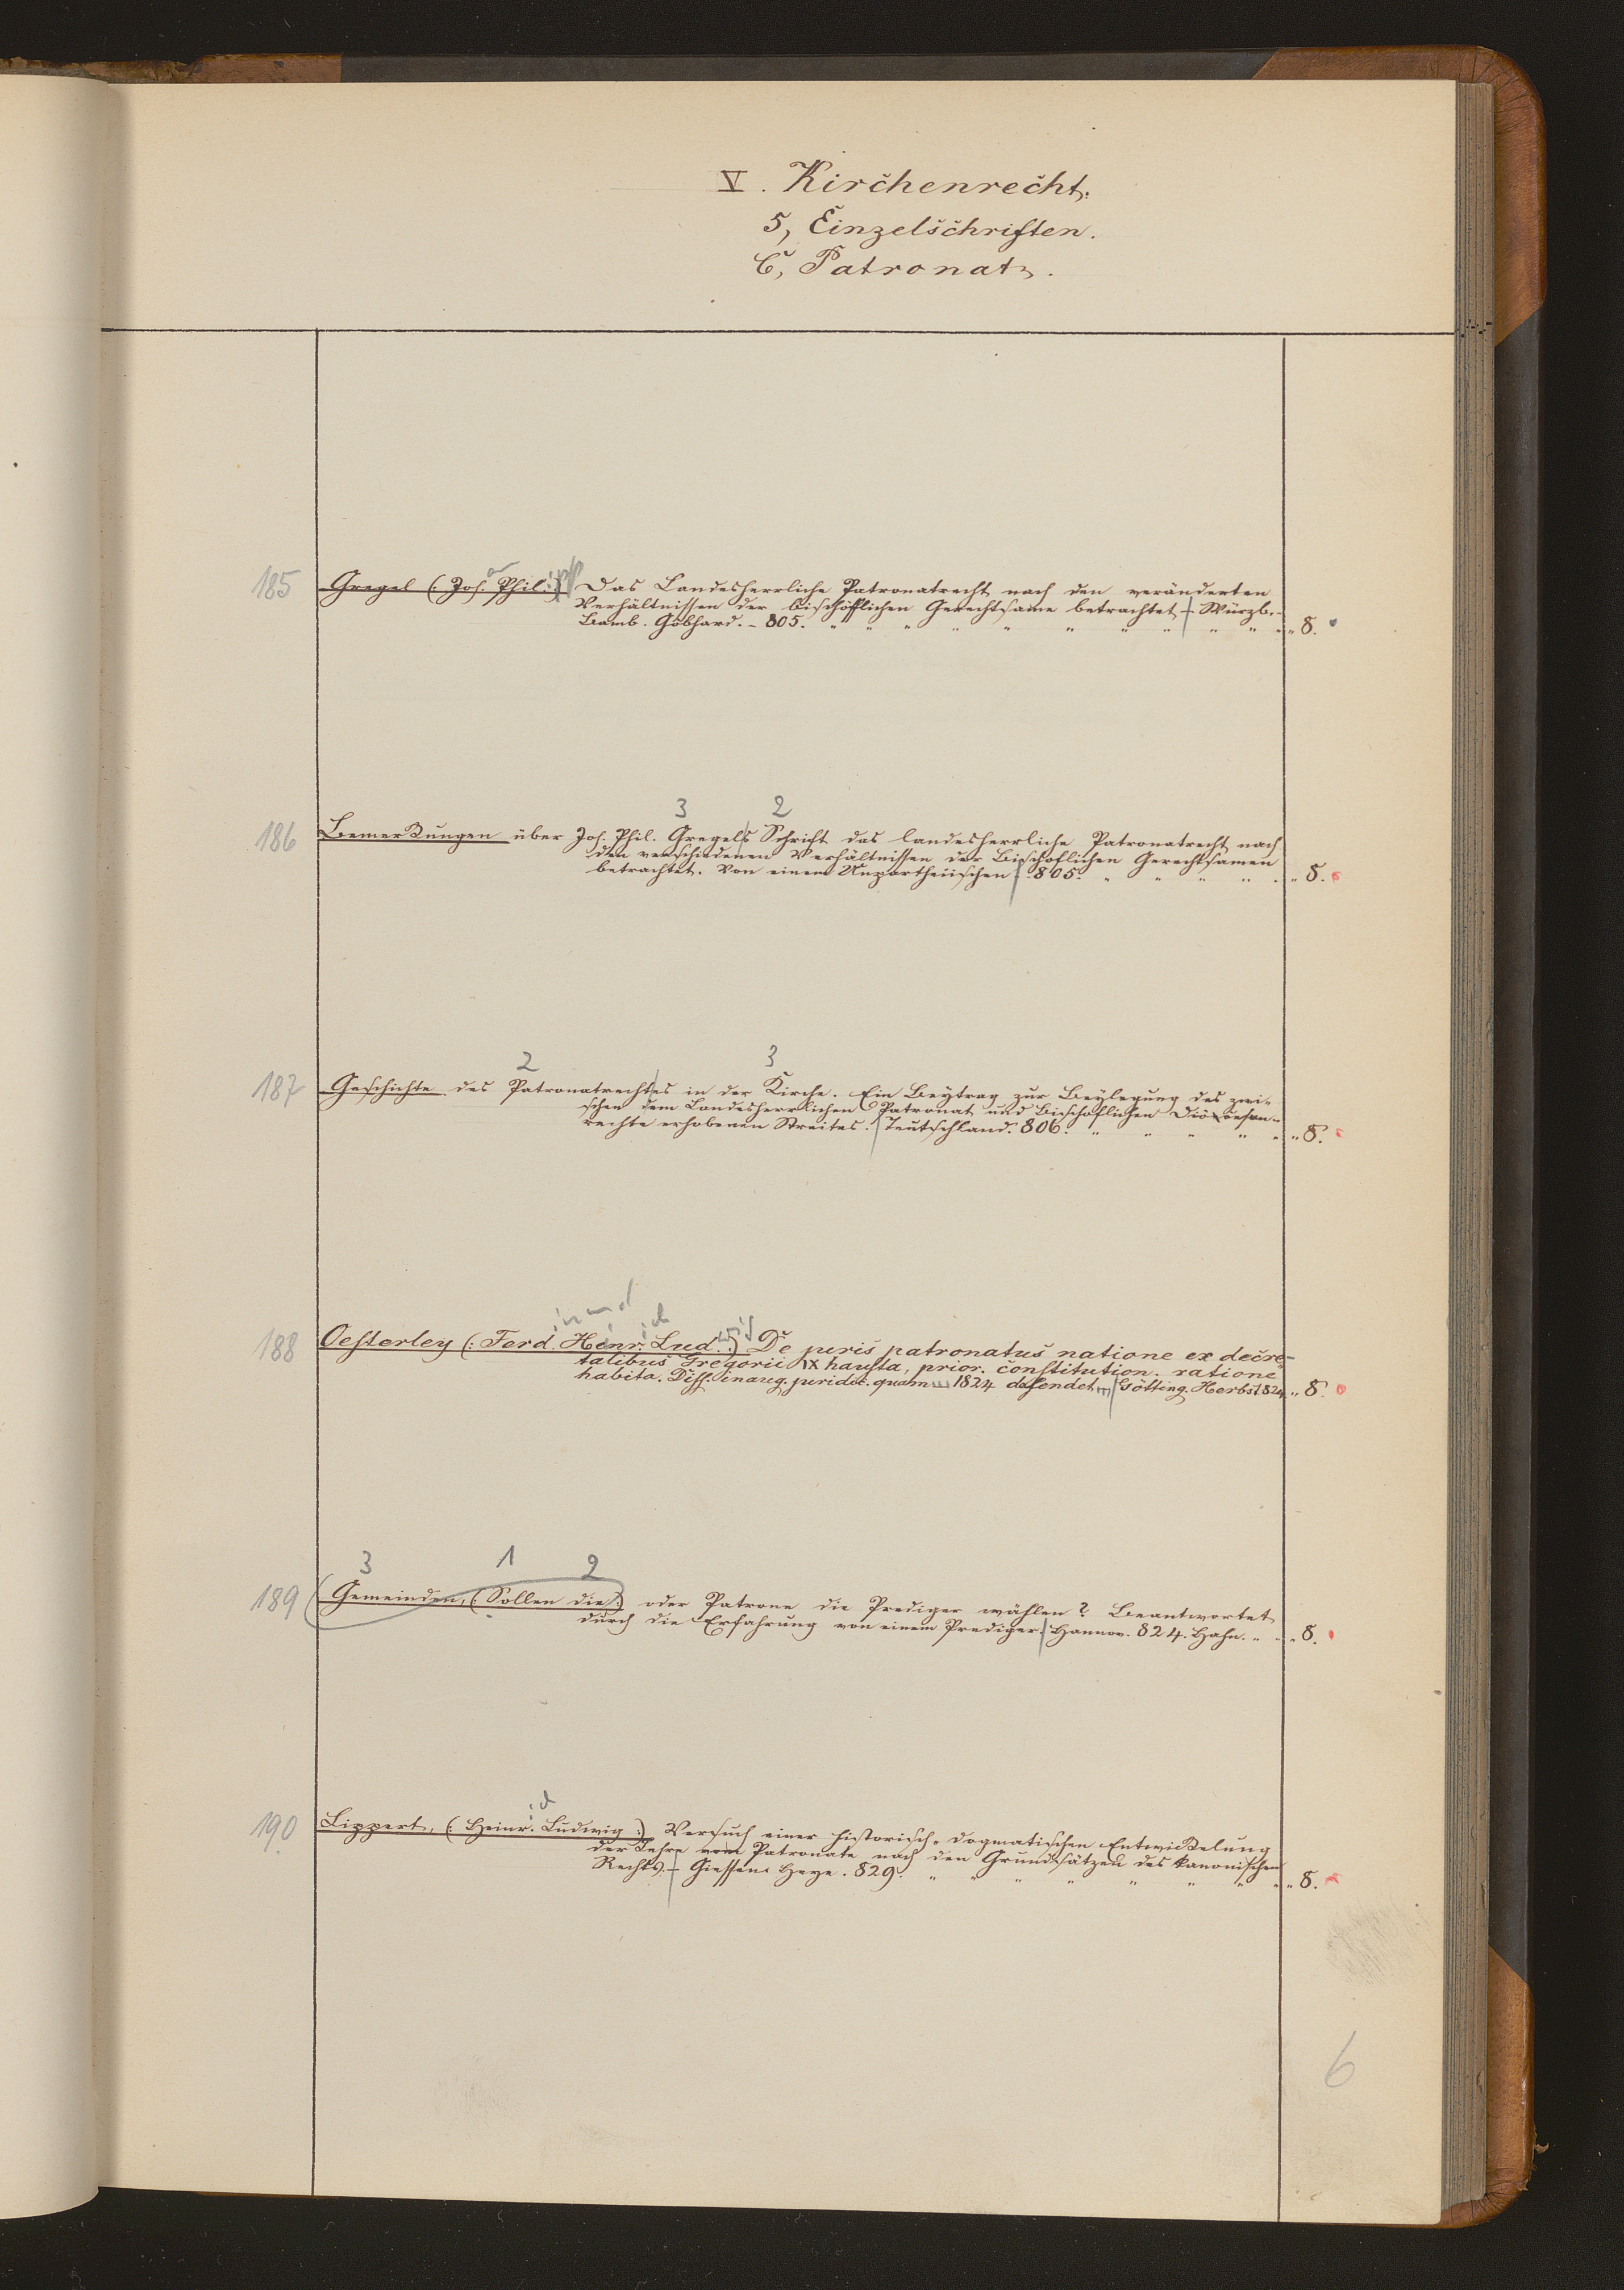 V. Kirchenrecht.
5, Einzelschriften.
C, Patronat.
185 Gregel (: Joh. Phil. :) Das Landesherrliche Patronatrecht nach den veränderten
Verhältnissen der bischöfflichen Gerechtsame betrachtet - Würzb.-
Bamb. Göbhard. - 805. " " " " " " " " " " " 8.
3 2
186 Bemerkungen über Joh. Phil. Gregels Schrift das landesherrliche Patronatrecht nach
den verschiedenen Verhältnissen der Bischoflichen Gerechtsamen
betrachtet. Von einem Unpartheiischen. 805. " " " " " " 8.
2 3
187 Geschichte des Patronatrechtes in der Kirche. Ein Beytrag zur Beylegung des zwi-
schen dem Landesherrlichen Patronat und Bischoflichen Diöcesan-
rechte erhobenen Streites. Teutschland. 806. " " " " " " 8.
inand
i ich wig
188 Oesterley (: Ferd. Henr. Lud. :) De juris patronatus natione ex decre-
talibus Gregorii IX hausta, prior. constitution. ratione
habita. Diss. inaug. juridic. quam 1824 defendet Götting. Herbst 824 " 8.
3 1 2
189 Gemeinden, (: Sollen die :) oder Patrone die Prediger wählen? Beantwortet
durch die Erfahrung von einem Prediger. Hannov. 824. Hahn. " " " 8.
ich
190 Lippert, (: Heinr. Ludwig :) Versuch einer historisch-dogmatischen Entwickelung
der Lehre vom Patronate nach den Grundsätzen des kanonischen
Rechts. - Giessen. Heye. 829. " " " " " " " " " 8.
6